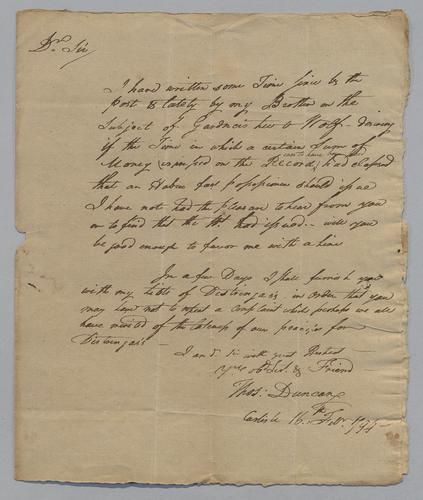 Dr. Sir
I have written some Time since by the
post & lately by my Brother on the
Subject of Gardner's heir v Wolf — desiring
if the Time in which a certain sum of
Money (expressed on the Record) had elapsed
that an Habere facias possessionem should issue
I have not had the pleasure to hear from you
or to find that the Wt. had issued — will you
be good enough to favor me with a line
In a few Days I shall furnish you
with my lists of Distringas, in order that you
may have not to repeat a complaint which perhaps we all
have merited of the lateness of our precipes for
Distringas —
I am Sir with great Respect
Your obt. Svt. & Friend
Thos. Duncan
Carlisle 16th Febr. 1795